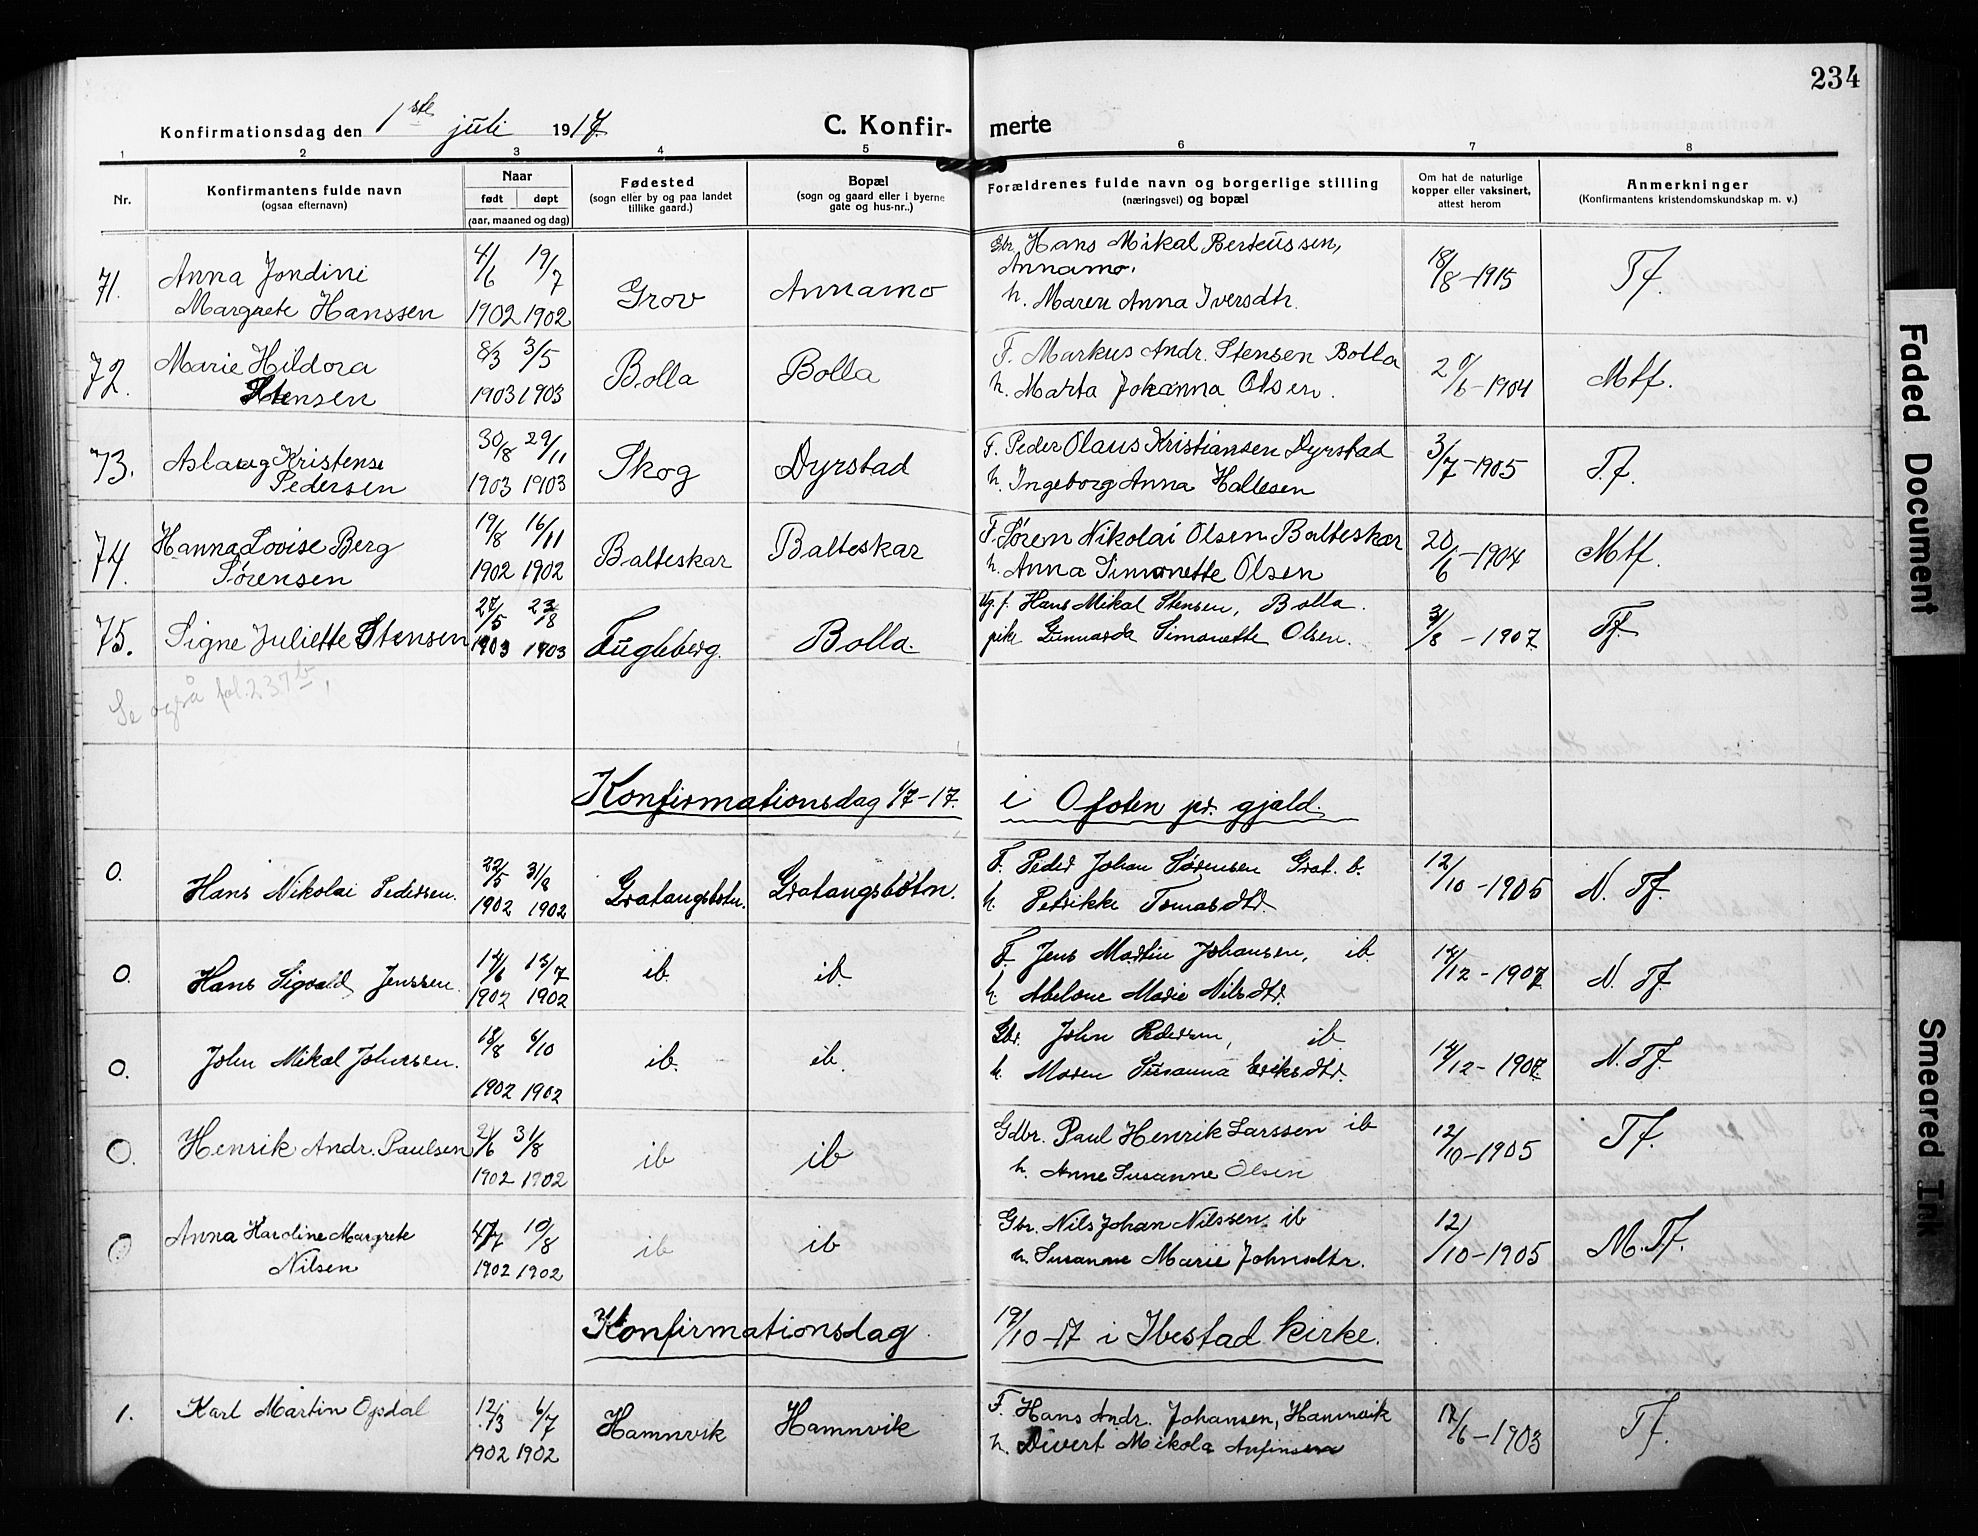 234
Konfirmationsdag den 1ste juli 1917. C. Konfir- merte
1 2 3 4 5 6 7 8
Nr.
Konfirmantens fulde navn
(ogsaa efternavn)
Naar
født døpt
(aar, maaned og dag)
Fødested
(sogn eller by og paa landet
tillike gaard.)
Bopæl
(sogn og gaard eller i byerne
gate og hus-nr..)
Forældrenes fulde navn og borgerlige stilling
(næringsvei) og bopæl
Om hat de naturlige
kopper eller vaksinert,
attest herom
Anmerkninger
(Konfirmantens kristendomskundskap m. v.)
71. Anna Jondine
Margrete Hanssen
4/6 1902 19/7 1902 Grov Annamo
Gbr. Hans Mikal Berteüssen,
Annamo.
h. Maren Anna Iversdtr.
18/8-1915 Tf.
72. Marie Hildora
Stensen
8/3 1903 3/5 1903 Bolla Bolla
F. Markus Andr. Stensen Bolla
h. Marta Johanna Olsen.
20/6-1904 Mtf.
73. Aslaug Kristense
Pedersen
30/8 1903 29/11 1903 Skog Dyrstad
F. Peder Olaus Kristiansen Dyrstad
h. Ingeborg Anna Hallesen
3/7-1905 T.f.
74. Hanna Lovise Berg
Sørensen
19/8 1902 16/11 1902 Balteskar Balteskar
F. Søren Nikolai Olsen Balteskar
h. Anna Simonette Olsen
20/6-1904 Mtf.
75. Signe Juliette Stensen
27/5 1903 23/8 1903 Fugleberg. Bolla.
Ug. f. Hans Mikal Stensen, Bolla.
pike Gunnarda Simonette Olsen.
3/8-1907 Tf.
Se også fol. 237b,
Konfirmationsdag 1/7-17. i Ofoten pr. gjæld.
0. Hans Nikolai Pedersen.
22/5 1902 31/8 1902 Gratangsbotn. Gratangsbotn.
F. Peder Johan Sørensen Grat. b.
h. Petrikke Tomasdtr.
12/10-1905 N. Tf.
0. Hans Sigvald Jenssen.
14/6 1902 13/7 1902 ib. ib.
F. Jens Martin Johansen, ib
h. Abelone Marie Nilsdtr.
14/12-1907 N. Tf.
0. John Mikal Johnsen.
18/8 1902 6/10 1902 ib. ib.
Gbr. John Pedersen, ib
h. Maren Susanna Eriksdtr.
14/12-1907 N. Tf.
0. Henrik Andr. Paulsen
2/6 1902 31/8 1902 ib ib
Gdbr. Paul Henrik Larssen ib
h. Anne Susanne Olsen
12/10-1905 Tf.
0. Anna Hardine Margrete
Nilsen
4/7 1902 10/8 1902 ib ib
Gbr. Nils Johan Nilssen ib
h. Susanne Marie Johnsdtr.
12/10-1905 M. Tf.
Konfirmationsdag. 19/10-17 i Ibestad kirke.
1. Karl Martin Opdal
12/3 1902 6/7 1902 Hamnvik Hamnvik
F. Hans Andr. Johansen, Hamnvik
h. Divert Mikola Anfinsen
17/6-1903 Tf.
Faded Document
Smeared Ink